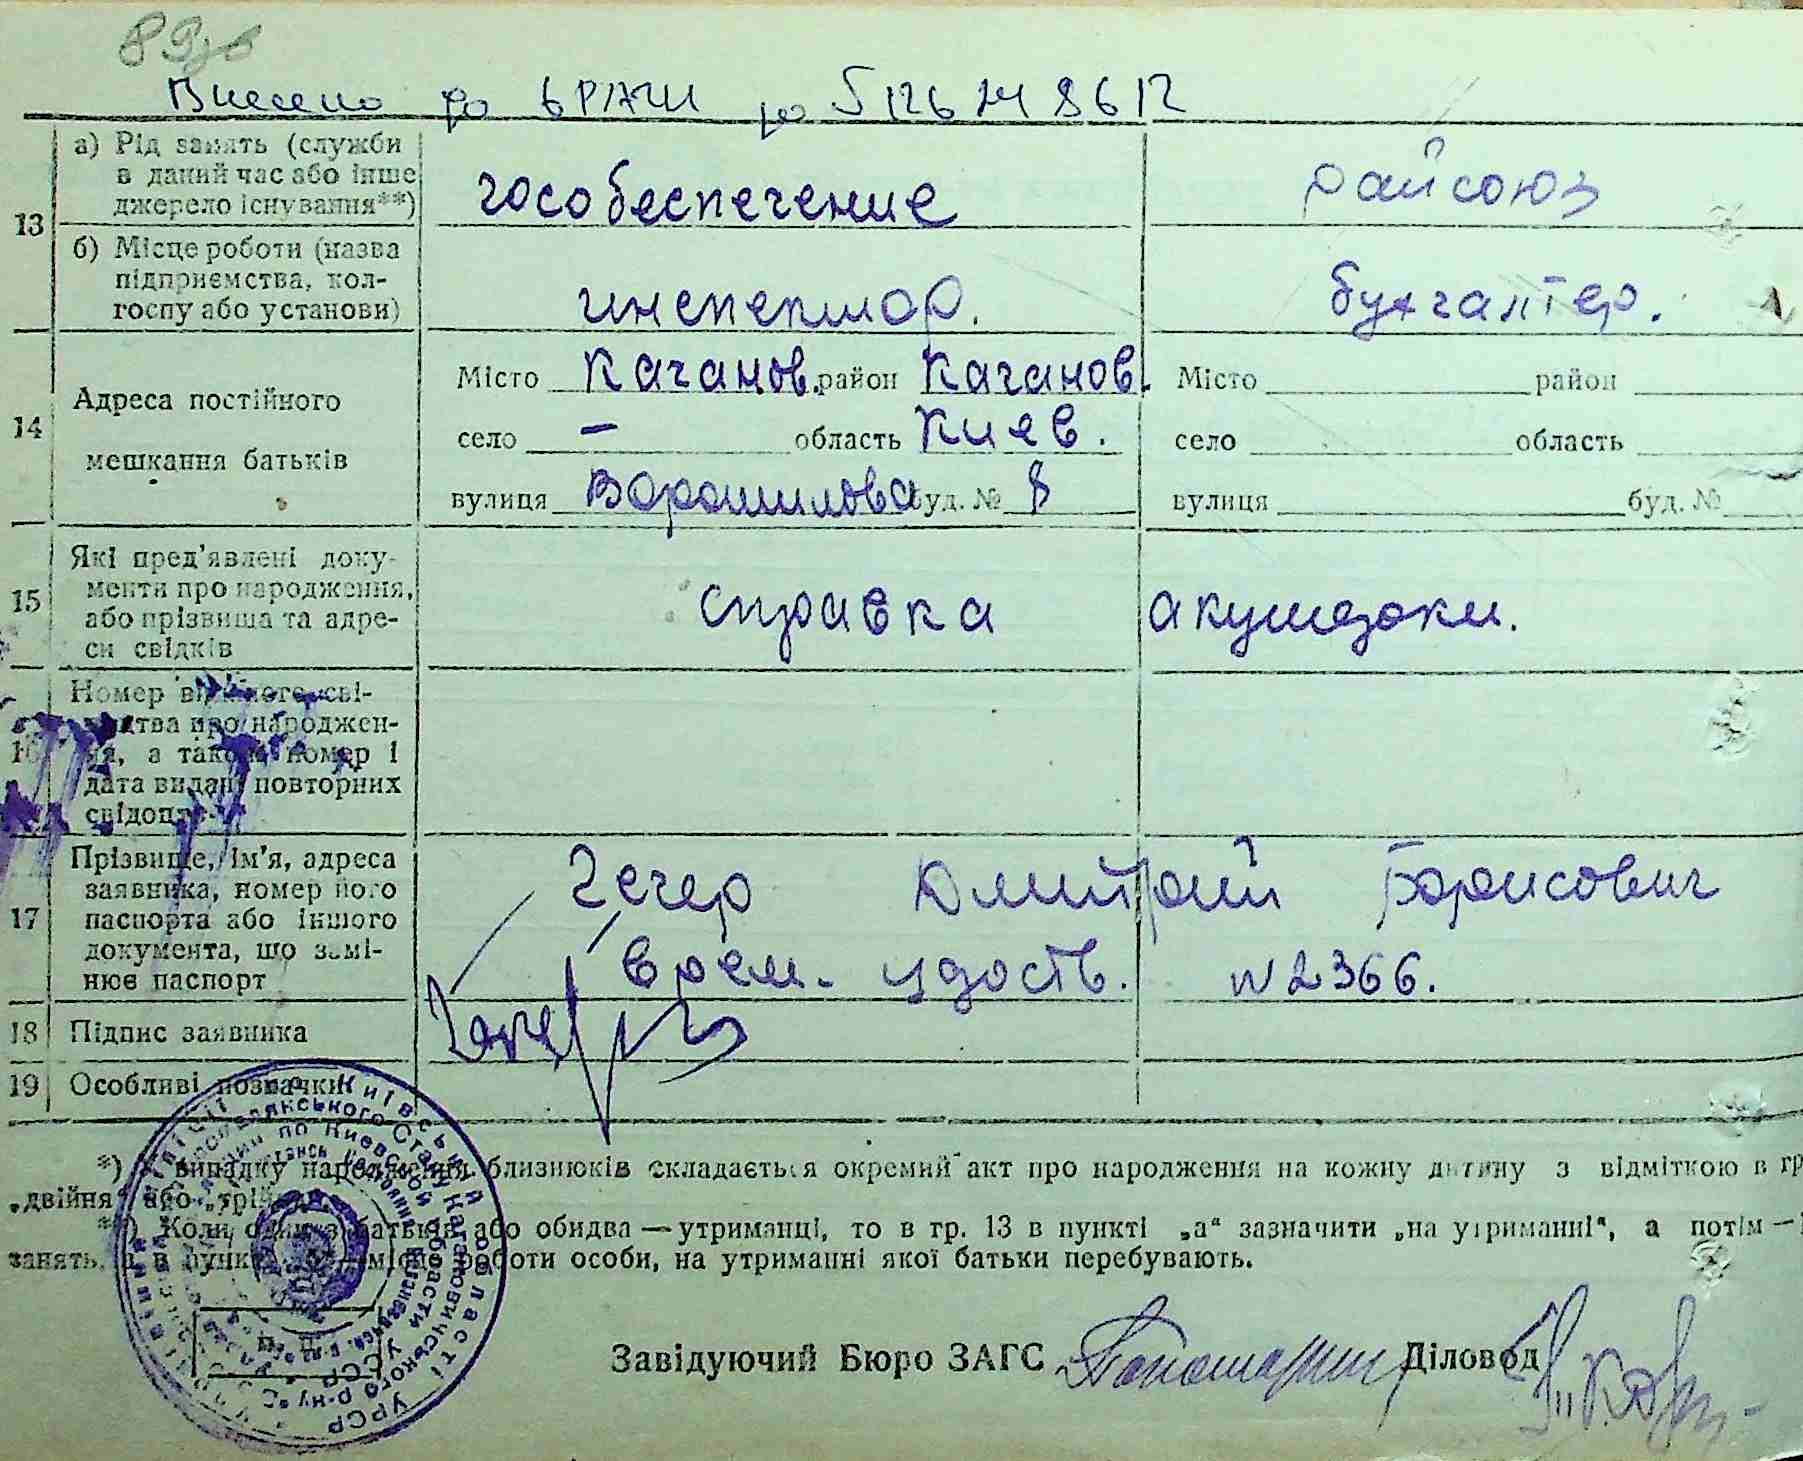 Внесено до ДРАЦС
13
а) Рід занять (служби
в даний час або інше
джерело існування**)
гособеспечение
райсоюз
б) Місце роботи (назва
підприємства, кол-
госпу або установи)
инспектор.
бухгалтер.
14
Адреса постійного
мешкання батьків
Місто Каганов. район Каганов.
село – область Киев.
вулиця Ворошилова буд. № 8
Місто район
село область
вулиця буд. №
15
Які пред'явлені доку-
менти про народження,
або прізвища та адре-
си свідків
справка акушерки.
16
Номер сві-
про народжен-
ня, а також номер і
дата видачі повторних
17
Прізвище, ім'я, адреса
заявника, номер його
паспорта або іншого
документа, що замі-
нює паспорт
Чечер Дмитрий Борисович
врем. удоств. №2366.
18 Підпис заявника
19 Особливі позначки
*) випадку народження близнюків складається окремий акт про народження на кожну дитину з відміткою в гр
„двійня“ або
**) Коли один з батьків або обидва — утриманці, то в гр. 13 в пункті „а“ зазначити „на утриманні“, а потім —
занять, місце роботи особи, на утриманні якої батьки перебувають.
Завідуючий Бюро ЗАГС Діловод